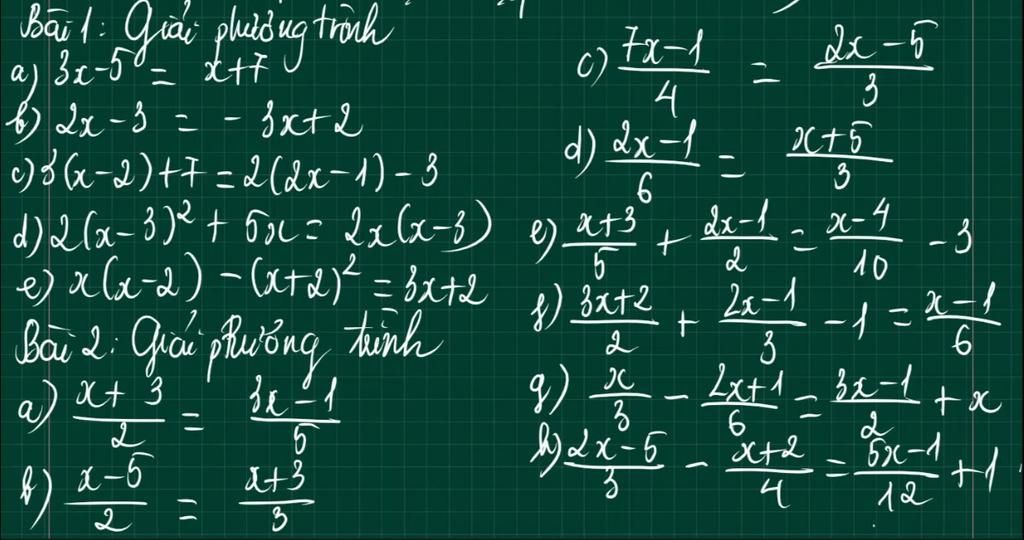 Bài 1: Giải phương trình
a) 3x-5 = x+7
b) 2x-3 = - 3x+2
c) 3(x-2)+7 = 2(2x-1)-3
d) 2(x-3)² + 5x = 2x(x-3)
e) x(x-2) - (x+2)² = 3x+2
Bài 2: Giải phương trình
a) (x+3)/2 = (3x-1)/5
b) (x-5)/2 = (x+3)/3
c) (7x-1)/4 = (2x-5)/3
d) (2x-1)/6 = (x+5)/3
e) (x+3)/5 + (2x-1)/2 = (x-4)/10 - 3
f) (3x+2)/2 + (2x-1)/3 - 1 = (x-1)/6
g) x/3 - (2x+1)/6 = (3x-1)/2 + x
h) (2x-5)/3 - (x+2)/4 = (5x-1)/12 + 1